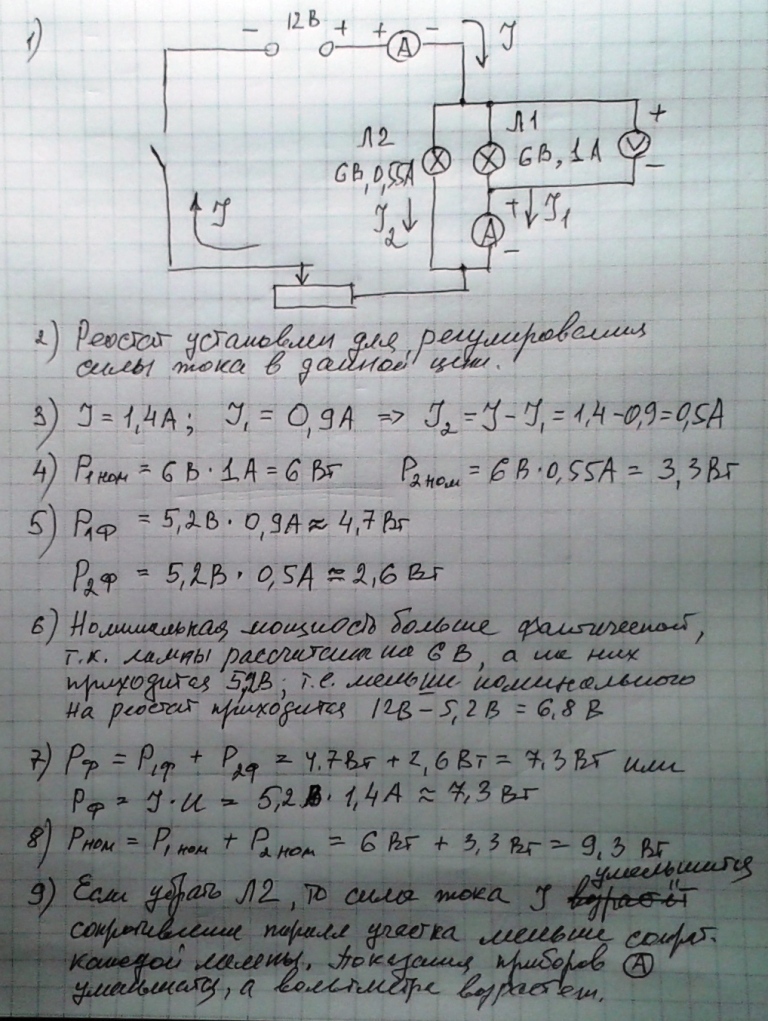 1)
- 12В + + А - I
Л2 Л1 +
6В, 0,55А 6В, 1А V -
I I₂ + I₁
А -
2) Реостат установлен для регулирования
силы тока в данной цепи.
3) I = 1,4А; I₁ = 0,9А => I₂ = I - I₁ = 1,4 - 0,9 = 0,5А
4) P₁ном = 6В · 1А = 6Вт P₂ном = 6В · 0,55А = 3,3Вт
5) P₁ф = 5,2В · 0,9А ≈ 4,7Вт
P₂ф = 5,2В · 0,5А ≈ 2,6Вт
6) Номинальная мощность больше фактической,
т.к. лампы рассчитаны на 6В, а на них
приходится 5,2В; т.е. меньше номинального
На реостат приходится 12В - 5,2В = 6,8В
7) Pф = P₁ф + P₂ф = 4,7Вт + 2,6Вт = 7,3Вт или
Pф = I · U = 5,2В · 1,4А ≈ 7,3Вт
8) Pном = P₁ном + P₂ном = 6Вт + 3,3Вт = 9,3Вт
уменьшится
9) Если убрать Л2, то сила тока I возрастёт
сопротивление паралл участка меньше сопрот.
каждой лампы. Показания приборов А
уменьшатся, а вольтметра возрастет.